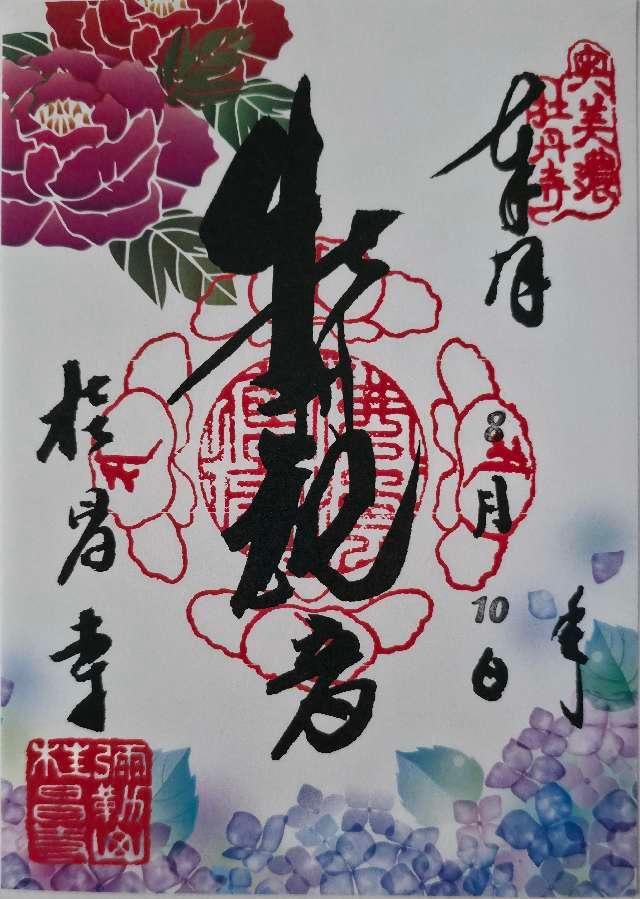 奥美濃
牡丹寺
奉拝
年
8月10日
牡丹観音
桂昌寺
彌勒山
桂昌寺